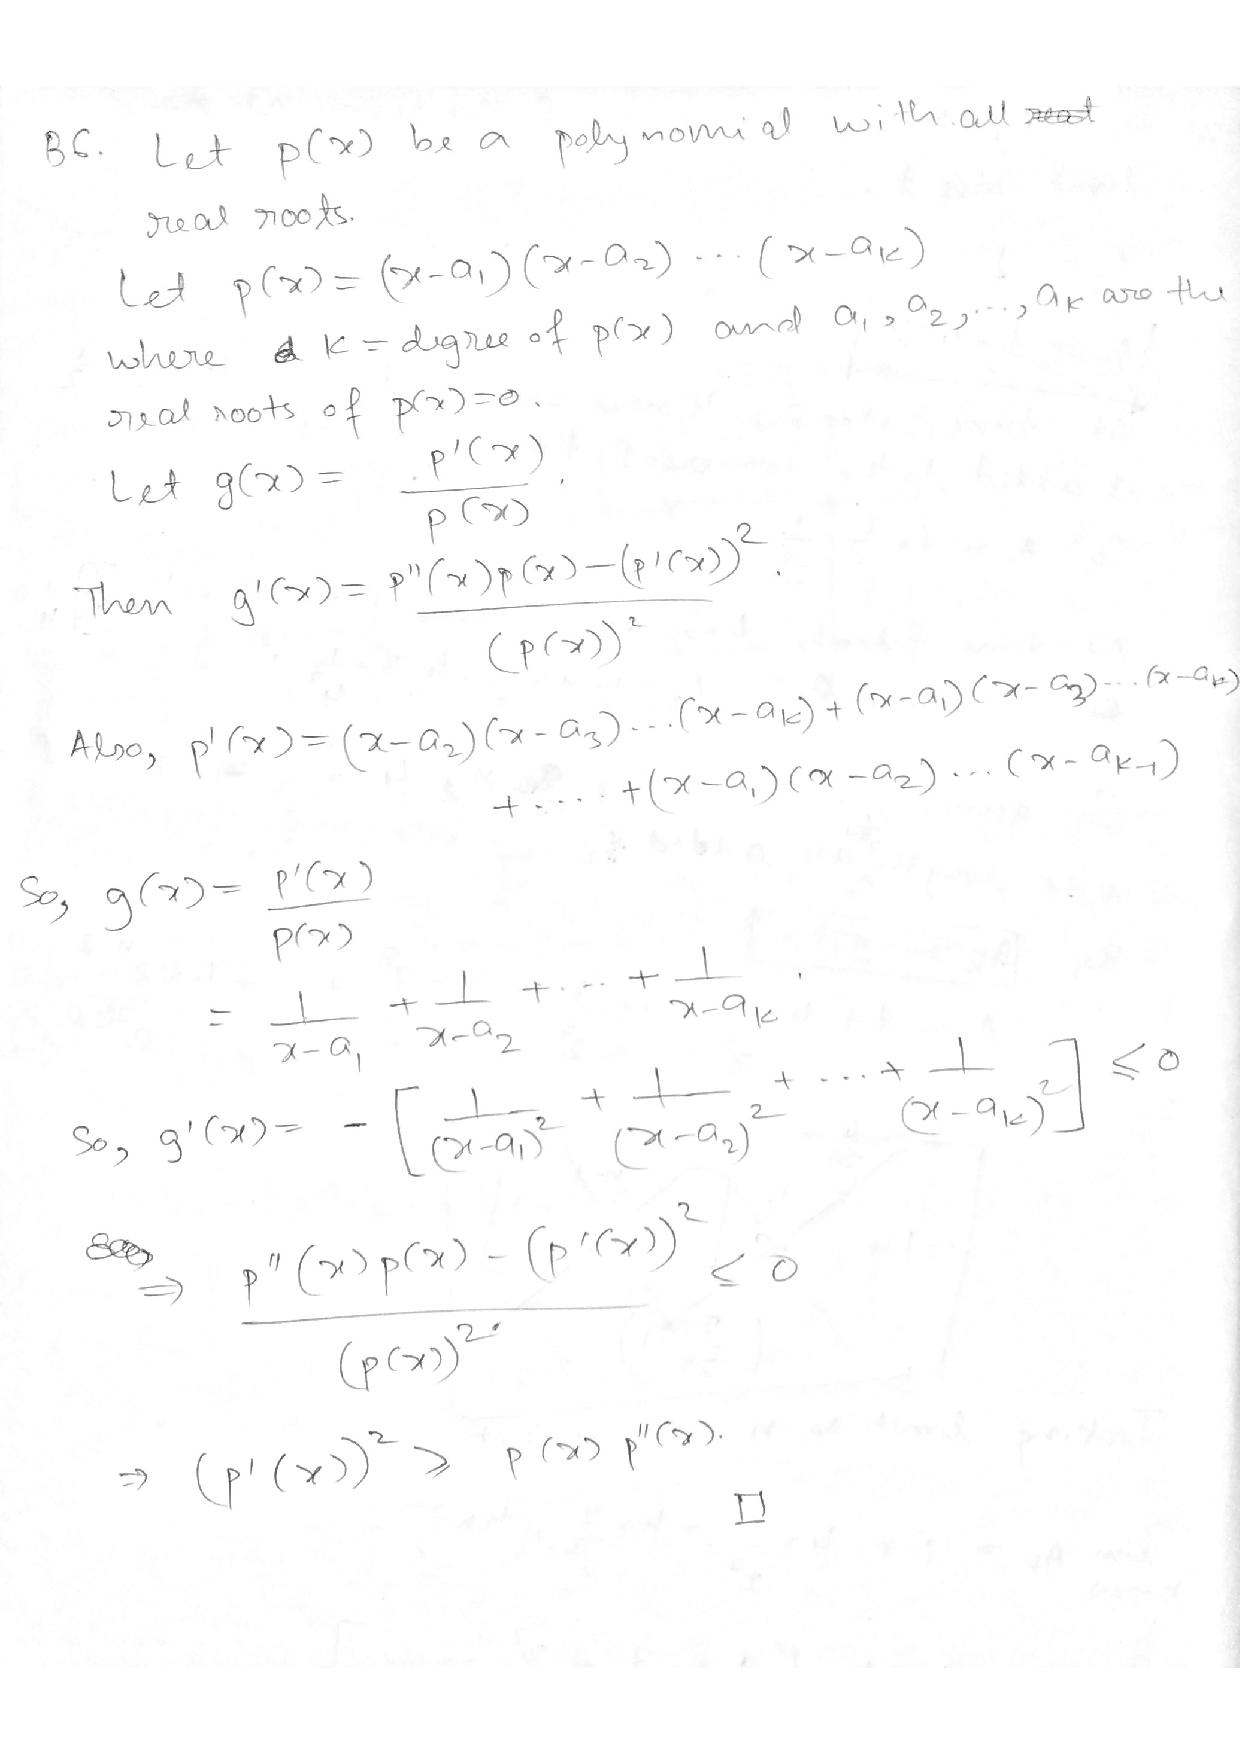 B6. Let p(x) be a polynomial with all
real roots.
Let p(x) = (x-a₁)(x-a₂) ... (x-aₖ)
where k = degree of p(x) and a₁, a₂, ..., aₖ are the
real roots of p(x)=0.
Let g(x) = p'(x) / p(x).
Then g'(x) = p''(x)p(x) - (p'(x))² / (p(x))².
Also, p'(x) = (x-a₂)(x-a₃)...(x-aₖ) + (x-a₁)(x-a₃)...(x-aₖ)
+ .... + (x-a₁)(x-a₂)...(x-aₖ₋₁)
So, g(x) = p'(x) / p(x)
= 1/(x-a₁) + 1/(x-a₂) + .... + 1/(x-aₖ).
So, g'(x) = - [1/(x-a₁)² + 1/(x-a₂)² + .... + 1/(x-aₖ)²] ≤ 0
⇒ p''(x)p(x) - (p'(x))² / (p(x))² ≤ 0
⇒ (p'(x))² ≥ p(x) p''(x).
□